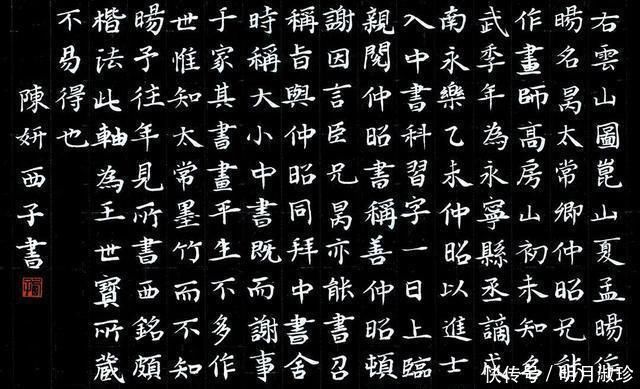 右雲山圖崑山夏孟暘作
暘名昺太常卿仲昭兄能
作畫師高房山初未知名
武季年為永寧縣丞謫戍
南永樂乙未仲昭以進士
入中書科習字一日上臨
親閱仲昭書稱善仲昭頓
謝因言臣兄昺亦能書召
稱旨與仲昭同拜中書舍
時稱大小中書既而謝事
于家其書畫平生不多作
世惟知太常墨竹而不知
暘予往年見所書西銘頗
楷法此軸為王世寶所藏
不易得也
陳妍西子書
快传号/明月淑珍